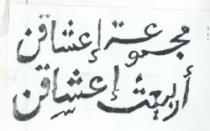 مجموعة إعشاقن
أربعت إعشاقن